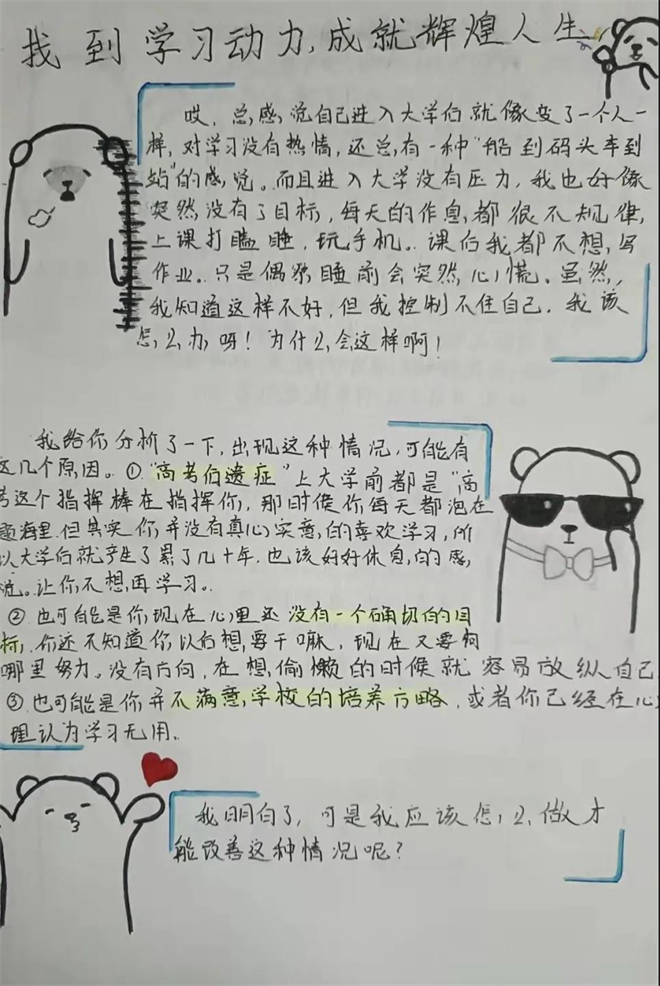 找到学习动力,成就辉煌人生
哎,总感觉自己进入大学后就像变了一个人一
样,对学习没有热情,还总有一种“船到码头车到
站”的感觉。而且进入大学没有压力,我也好像
突然没有了目标,每天的作息都很不规律,
上课打瞌睡,玩手机。课后我都不想写
作业。只是偶尔睡前会突然心慌。虽然,
我知道这样不好,但我控制不住自己.我该
怎么办呀!为什么会这样啊!
我给你分析了一下,出现这种情况,可能有
这几个原因。①.“高考后遗症”上大学前都是“高
考这个指挥棒在指挥你,那时候你每天都泡在
题海里.但其实你并没有真心实意的喜欢学习,所
以大学后就产生了累了几十年.也该好好休息的感
觉。让你不想再学习。
②.也可能是你现在心里还没有一个确切的目
标.你还不知道你以后想要干嘛,现在又要向
哪里努力。没有方向,在想偷懒的时候就容易放纵自己
③.也可能是你并不满意学校的培养方略,或者你已经在心
理认为学习无用。
我明白了,可是我应该怎么做才
能改善这种情况呢?